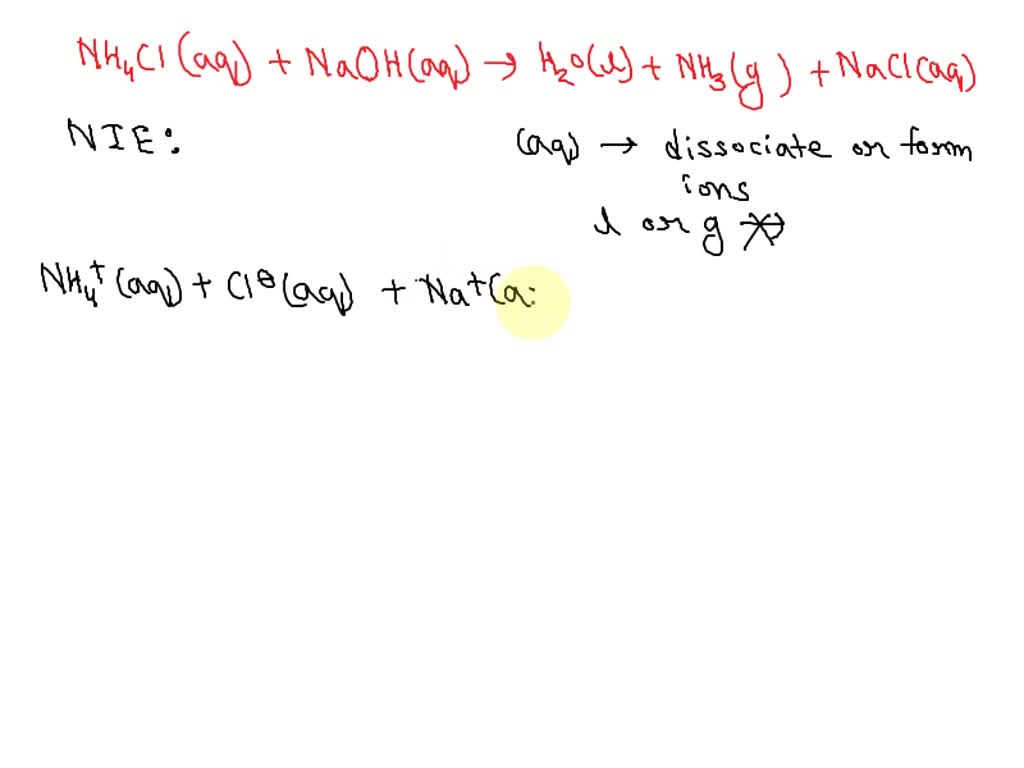 NH₄Cl(aq) + NaOH(aq) → H₂O(l) + NH₃(g) + NaCl(aq)
NIE:
(aq) → dissociate or form
ions
l or g
NH₄⁺(aq) + Cl⊖(aq) + Na⁺(a